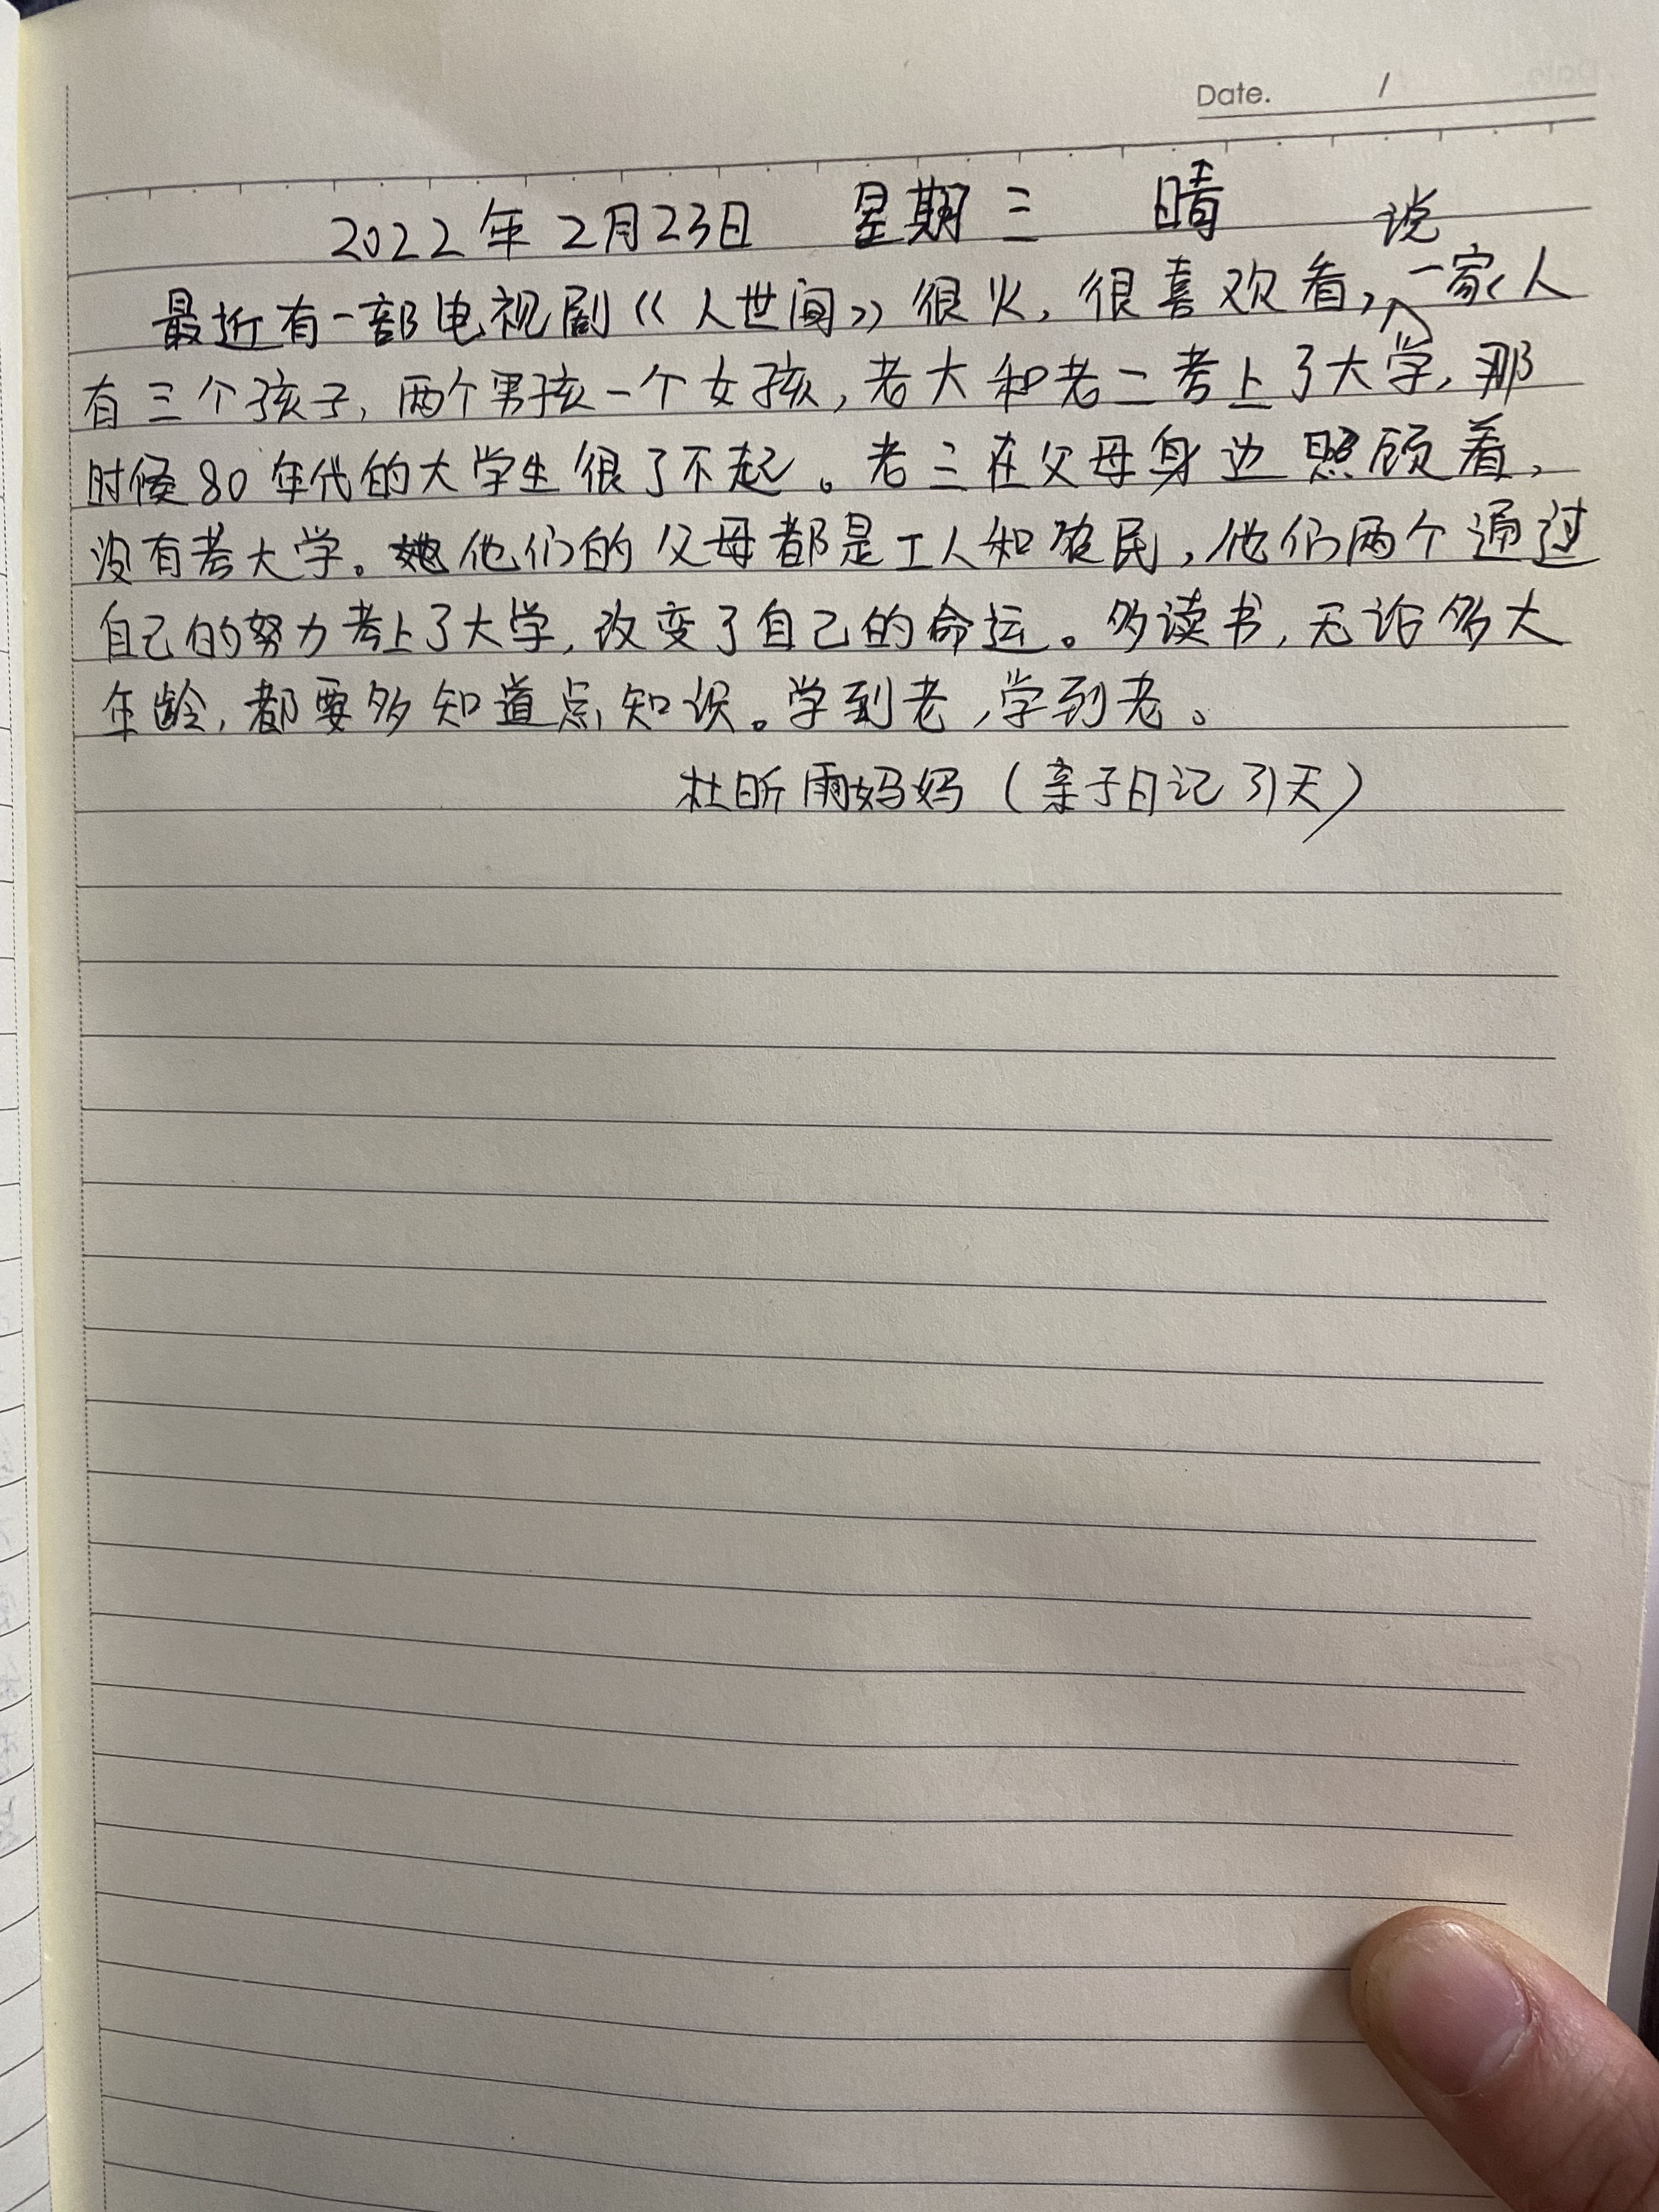 Date. /
2022年2月23日 星期三 晴
最近有一部电视剧《人世间》很火,很喜欢看,说一家人
有三个孩子,两个男孩一个女孩,老大和老二考上了大学,那
时候80年代的大学生很了不起。老三在父母身边照顾着,
没有考大学。他们的父母都是工人和农民,他们两个通过
自己的努力考上了大学,改变了自己的命运。多读书,无论多大
年龄,都要多知道点知识。学到老,学到老。
杜昕雨妈妈(亲子日记31天)